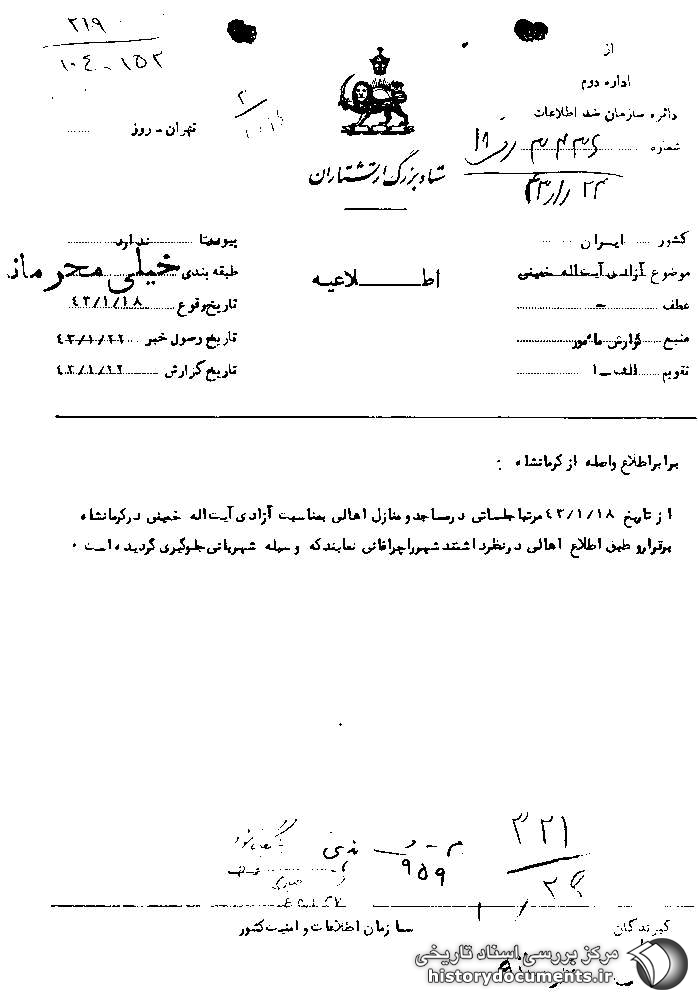 ۲۱۹
۱۰۴-۱۵۲
از
اداره دوم
دائره سازمان ضد اطلاعات
شماره
۴۳/۱/۲۴
تهران - روز
ستاد بزرگ ارتشتاران
کشور ایران
موضوع آزادی آیت اله خمینی
عطف -
منبع گزارش مأمور
تقویم الف-۱
اطلاعیه
پیوستها ندارد
طبقه بندی خیلی محرمانه
تاریخ وقوع ۴۳/۱/۱۸
تاریخ رسول خبر ۴۳/۱/۲۲
تاریخ گزارش ۴۳/۱/۲۲
برابر اطلاع واصله از کرمانشاه :
از تاریخ ۴۳/۱/۱۸ مرتبا جلساتی در مساجد و منازل اهالی بمناسبت آزادی آیت اله خمینی در کرمانشاه
برقرار و طبق اطلاع اهالی در نظر داشتند شهر را چراغانی نمایند که وسیله شهربانی جلوگیری گردیده است .
۳۲۱
۹۵۹
گیرندگان
سازمان اطلاعات و امنیت کشور
مرکز بررسی اسناد تاریخی
historydocuments.ir